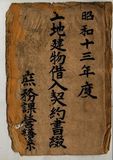 昭和十三年度
土地建物借入契約書綴
庶務課